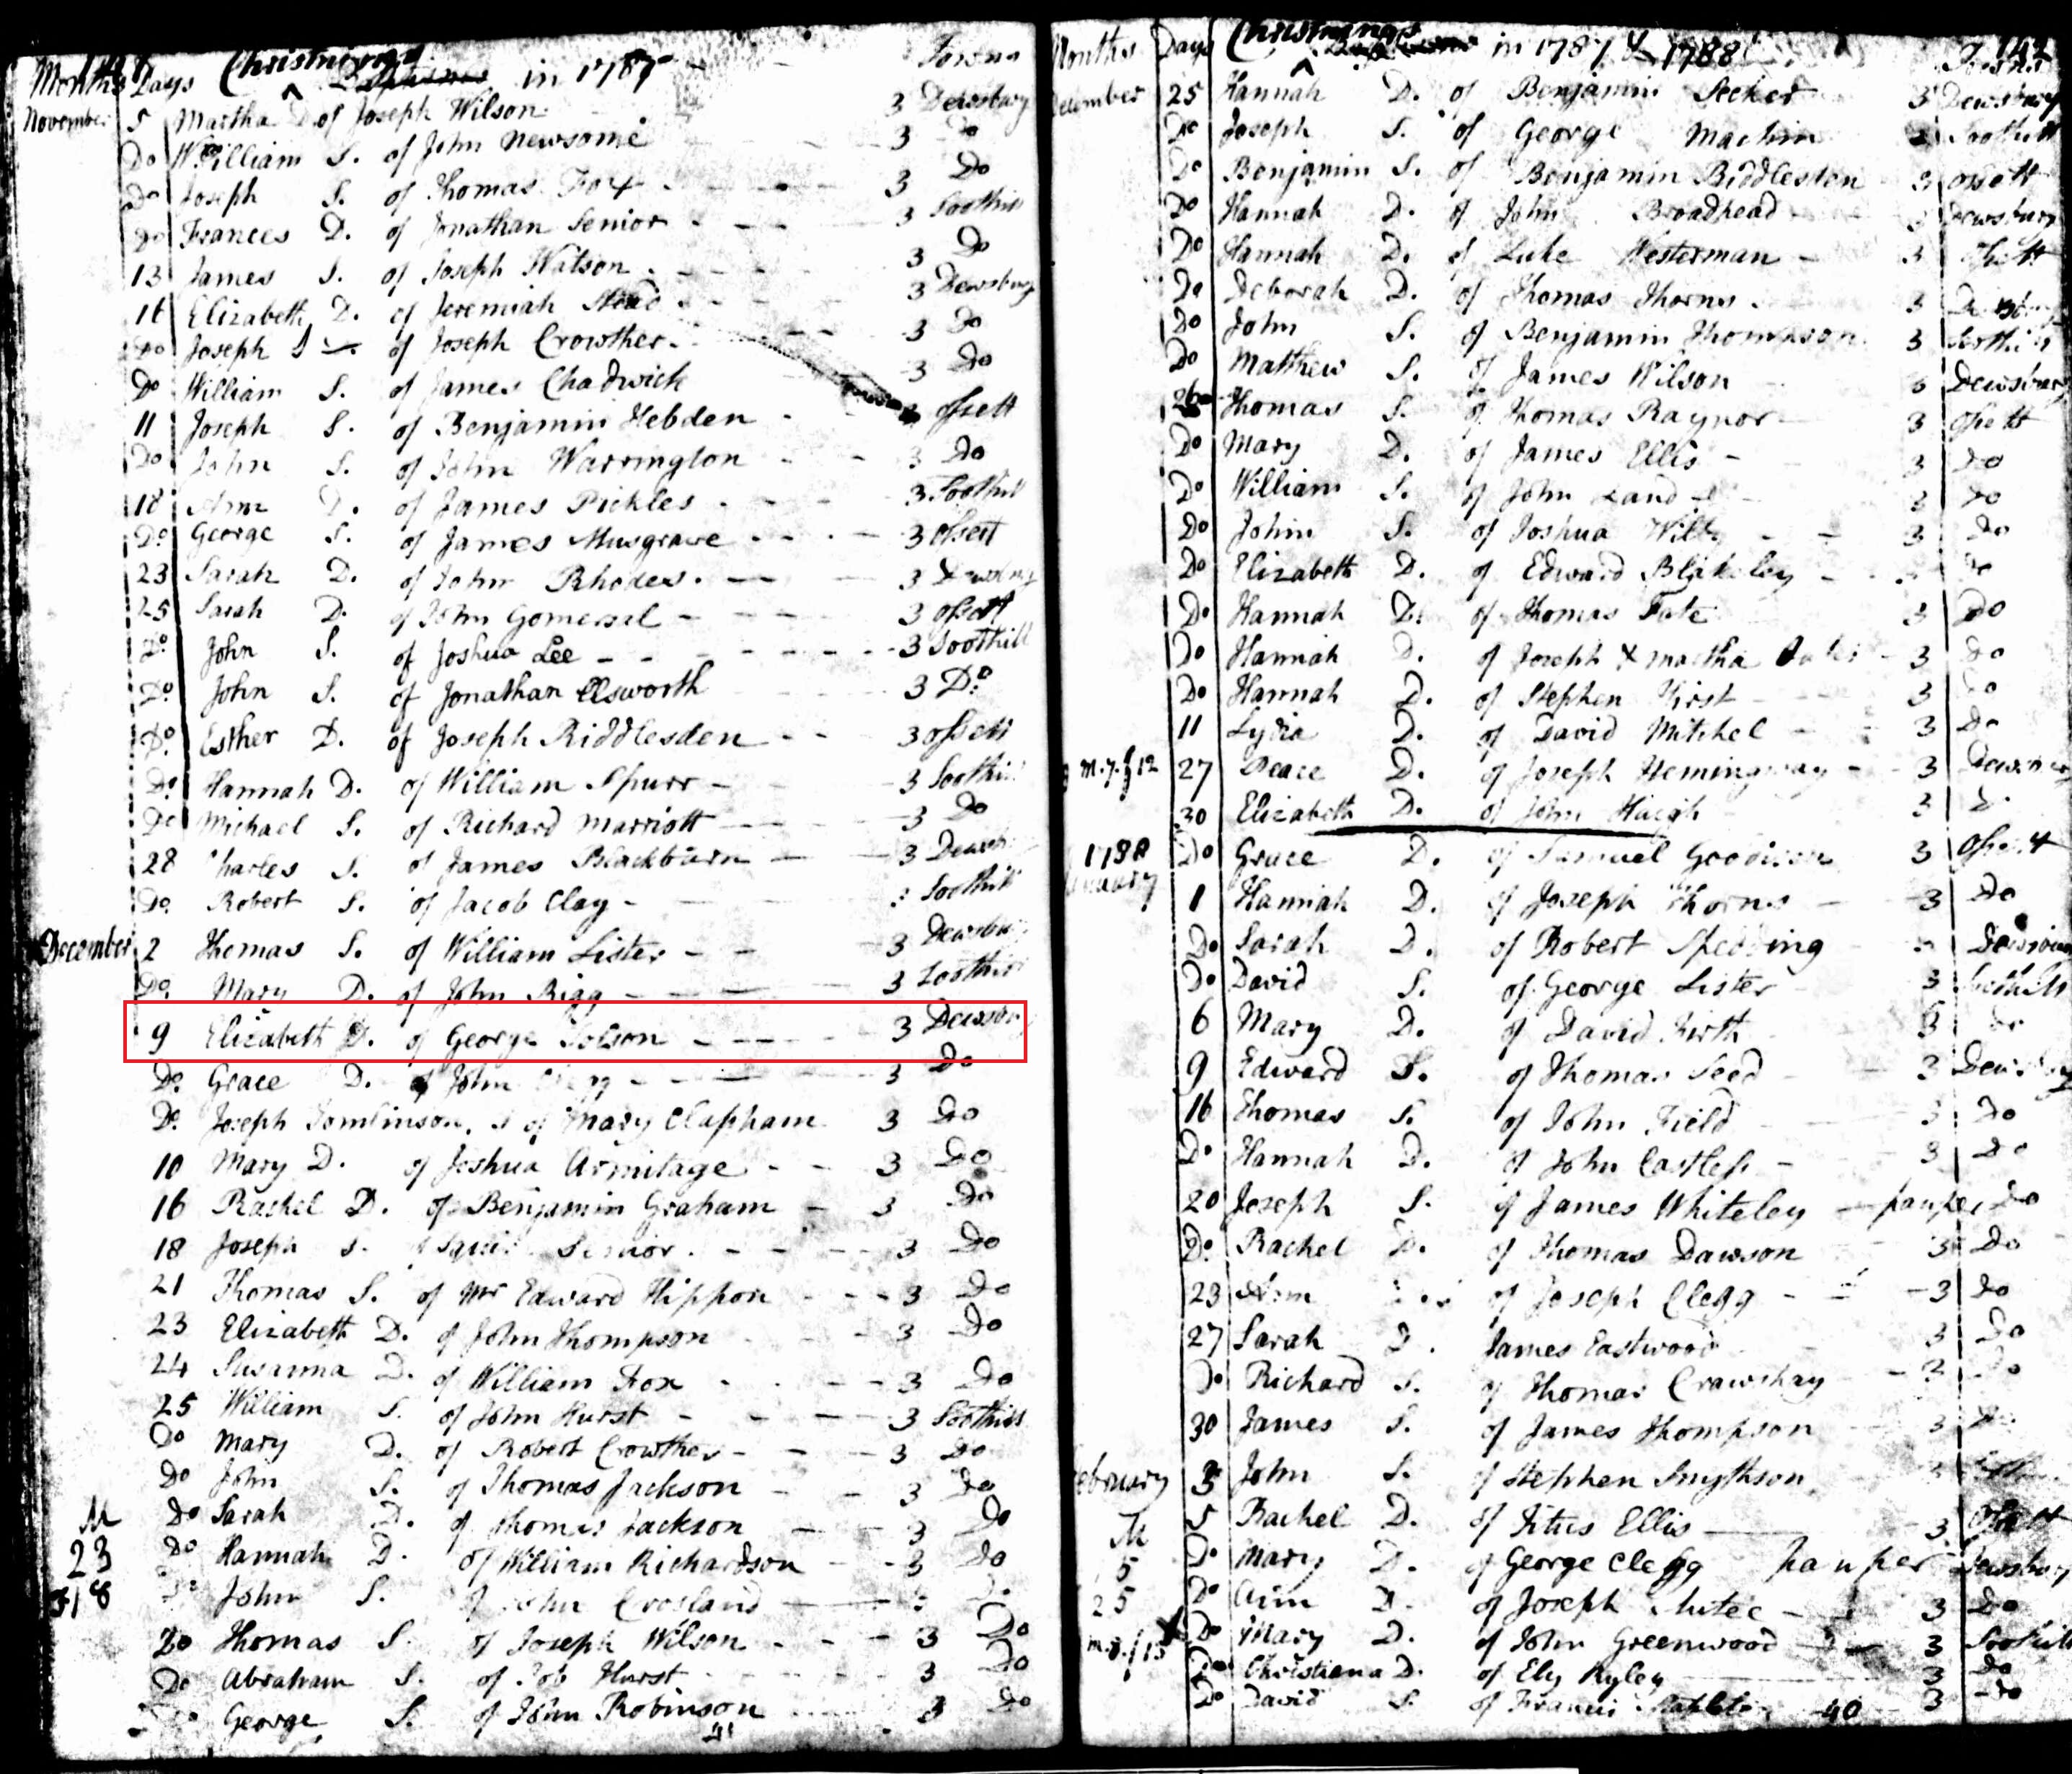 Months Days Christnings in 1787 Towns
November 5 Martha D. of Joseph Wilson 3 Dewsbury
Do William S. of John Newsome 3 Do
Do Joseph S. of Thomas Fox 3 Do
Do Frances D. of Jonathan Senior 3 Soothill
13 James S. of Joseph Watson 3 Do
16 Elizabeth D. of Jeremiah 3 Dewsbury
Do Joseph S of Joseph Crowther 3 Do
Do William S. of James Chadwick 3 Do
11 Joseph S. of Benjamin Hebden Ossett
Do John S. of John Warrington 3 Do
18 Ann D. of James Pickles 3 Soothill
Do George S. of James Musgrave 3 Ossett
23 Sarah D. of John Rhodes 3 Dewsbury
25 Sarah D. of John Gomersal 3 Ossett
Do John S. of Joshua Lee 3 Soothill
Do John S. of Jonathan Elsworth 3 Do
Do Esther D. of Joseph Riddlesden 3 Ossett
Do Hannah D. of William Spurr 3 Soothill
Do Michael S. of Richard Marriott 3 Do
28 Charles S. of James Blackburn 3 Dewsb
Do Robert S. of Jacob Clay Soothill
December 2 Thomas S. of William Lister 3 Dewsbu
Do Mary D. of John Rigg 3 Soothill
9 Elizabeth D. of George Tolson 3 Dewsbury
Do Grace D. of John 3 Do
Do Joseph Tomlinson, S of Mary Clapham 3 Do
10 Mary D. of Joshua Armitage 3 Do
16 Rachel D. of Benjamin Graham 3 Do
18 Joseph S. of Squire Senior 3 Do
21 Thomas S. of Mr Edward Hippon 3 Do
23 Elizabeth D. of John Thompson 3 Do
24 Susanna D. of William Fox 3 Do
25 William S. of John Hurst 3 Soothill
Do Mary D. of Robert Crowther 3 Do
Do John S. of Thomas Jackson 3 Do
M Do Sarah D. of Thomas Jackson 3 Do
23 Do Hannah D. of William Richardson 3 Do
18 John S. of John Crosland
Do Thomas S. of Joseph Wilson 3 Do
Do Abraham S. of Job Hurst 3 Do
George S. of John Robinson 3 Do
Months Days Christnings in 1787 & 1788 Towns
December 25 Hannah D. of Benjamin Secker 3 Dewsbury
Do Joseph S. of George Machin Soothill
Do Benjamin S. of Benjamin Riddlesden 3 Ossett
Do Hannah D. of John Broadhead 3 Dewsbury
Do Hannah D. of Luke Westerman 3 Ossett
Do Deborah D. of Thomas Thorns 3
Do John S. of Benjamin Thompson 3 Soothill
Do Matthew S. of James Wilson Dewsbury
26 Thomas S. of Thomas Raynor 3 Ossett
Do Mary D. of James Ellis 3 Do
Do William S. of John Land 3 Do
Do John S. of Joshua Wilby 3 Do
Do Elizabeth D. of Edward Blakeley Do
Do Hannah D. of Thomas Tate 3 Do
Do Hannah D. of Joseph & Martha 3 Do
Do Hannah D. of Stephen Hirst 3 Do
11 Lydia D. of David Mitchel 3 Do
27 Peace D. of Joseph Hemingway 3 Dewsbury
30 Elizabeth D. of John Haigh 3 D
1788 Do Grace D. of Samuel Goodison 3 Ossett
January 1 Hannah D. of Joseph Thorns 3 Do
Do Sarah D. of Robert Spedding Dewsbury
Do David S. of George Lister 3 Soothill
6 Mary D. of David Firth 3 Do
9 Edward S. of Thomas Seed 3 Dewsbury
16 Thomas S. of John Field 3 Do
Do Hannah D. of John Castless 3 Do
20 Joseph S. of James Whiteley pauper Do
Do Rachel D. of Thomas Dawson 3 Do
23 Ann of Joseph Clegg 3 Do
27 Sarah D. James Eastwood 3 Do
Do Richard S. of Thomas Crawshay 3 Do
30 James S. of James Thompson 3 Do
February 3 John S. of Stephen Smythson
M 5 Rachel D. of Titus Ellis 3 Ossett
5 Do Mary D. of George Clegg pauper Dewsbury
25 Do Ann D. of Joseph 3 Do
Do Mary D. of John Greenwood 3 Soothill
Do Christiana D. of Ely Ryley 3 Do
Do David S. of Francis 40 3 Do